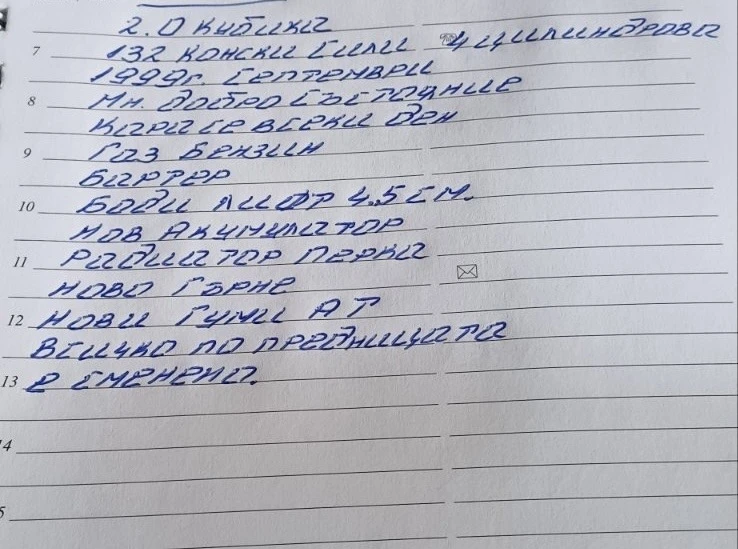 2.0 кубика
7 132 конски сили 4 цилиндрова
1999г. септември
8 Мн. добро състояние
Кара се всеки ден
9 Газ Бензин
Бартер
10 Боди лифт 4.5 см.
Нов Акумулатор
11 Радиатор перка
ново гърне
12 нови гуми АТ
всичко по предницата
13 е сменено.
14
5